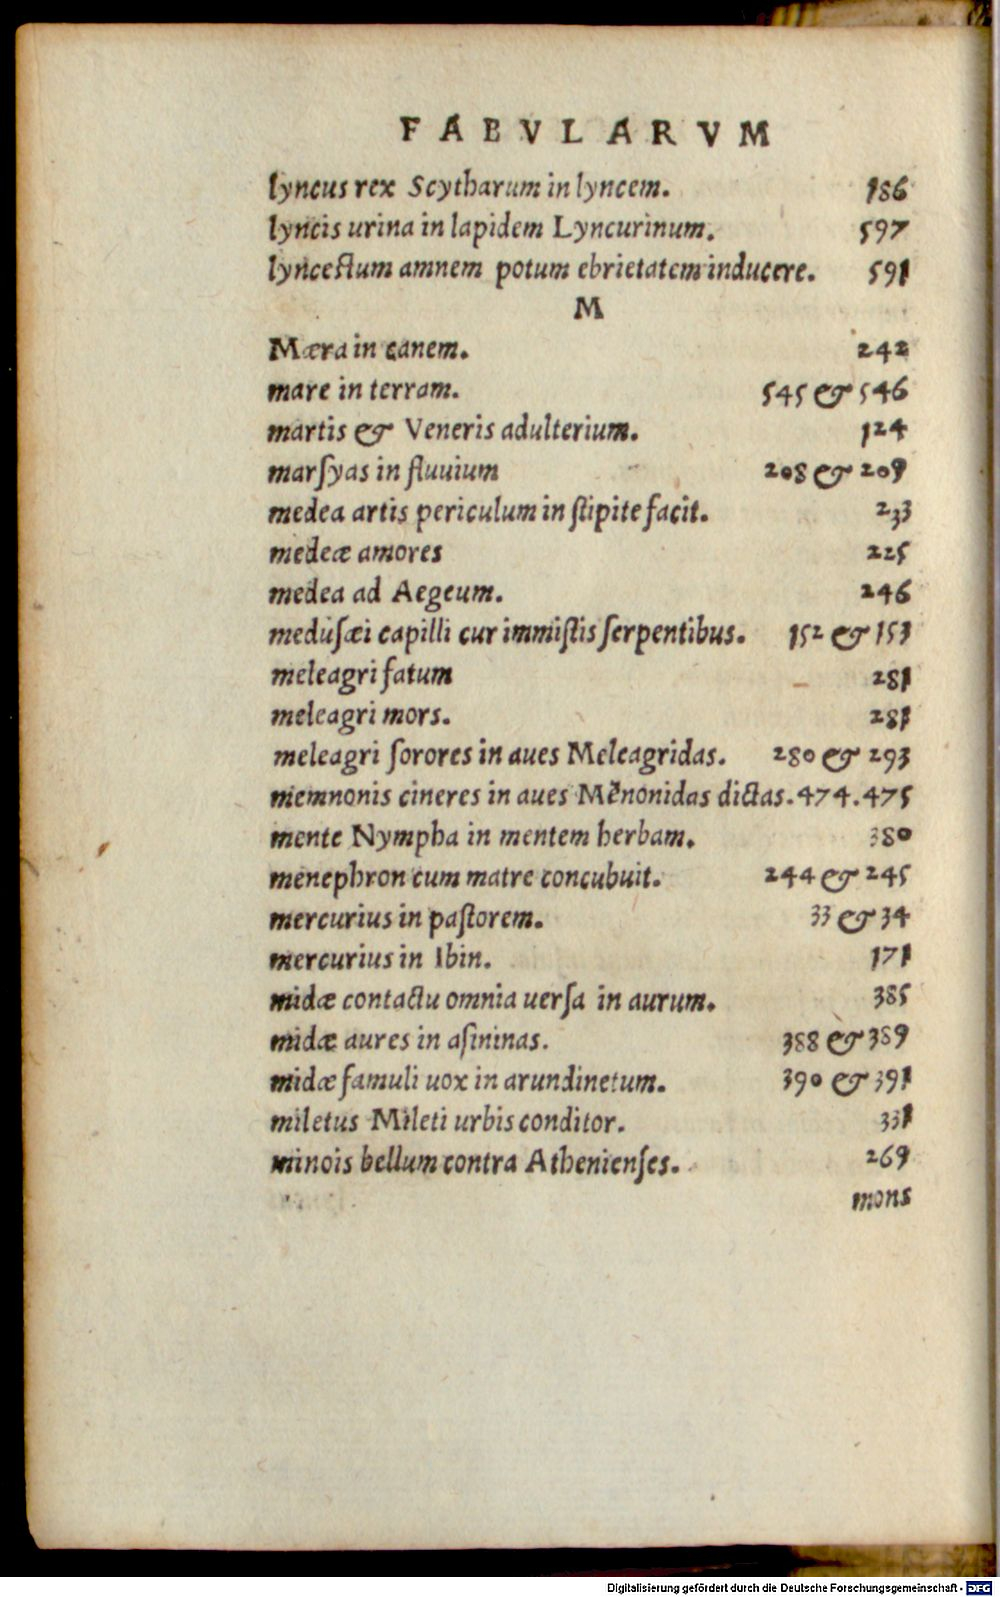 FABVLARVM
lyncus rex Scytharum in lyncem. 186
lyncis urina in lapidem Lyncurinum. 597
lyncestum amnem potum ebrietatem inducere. 591
M
Mæra in canem. 242
mare in terram. 545 & 546
martis & Veneris adulterium. 124
marſyas in fluuium 208 & 209
medea artis periculum in ſtipite facit. 233
medeæ amores 225
medea ad Aegeum. 246
meduſæi capilli cur immiſtis ſerpentibus. 152 & 153
meleagri fatum 281
meleagri mors. 281
meleagri ſorores in aues Meleagridas. 280 & 293
memnonis cineres in aues Mẽnonidas dictas. 474. 475
mente Nympha in mentem herbam. 380
menephron cum matre concubuit. 244 & 245
mercurius in paſtorem. 33 & 34
mercurius in Ibin. 171
midæ contactu omnia uerſa in aurum. 385
midæ aures in aſininas. 388 & 389
midæ famuli uox in arundinetum. 390 & 391
miletus Mileti urbis conditor. 331
minois bellum contra Athenienſes. 269
mons
Digitalisierung gefördert durch die Deutsche Forschungsgemeinschaft - DFG